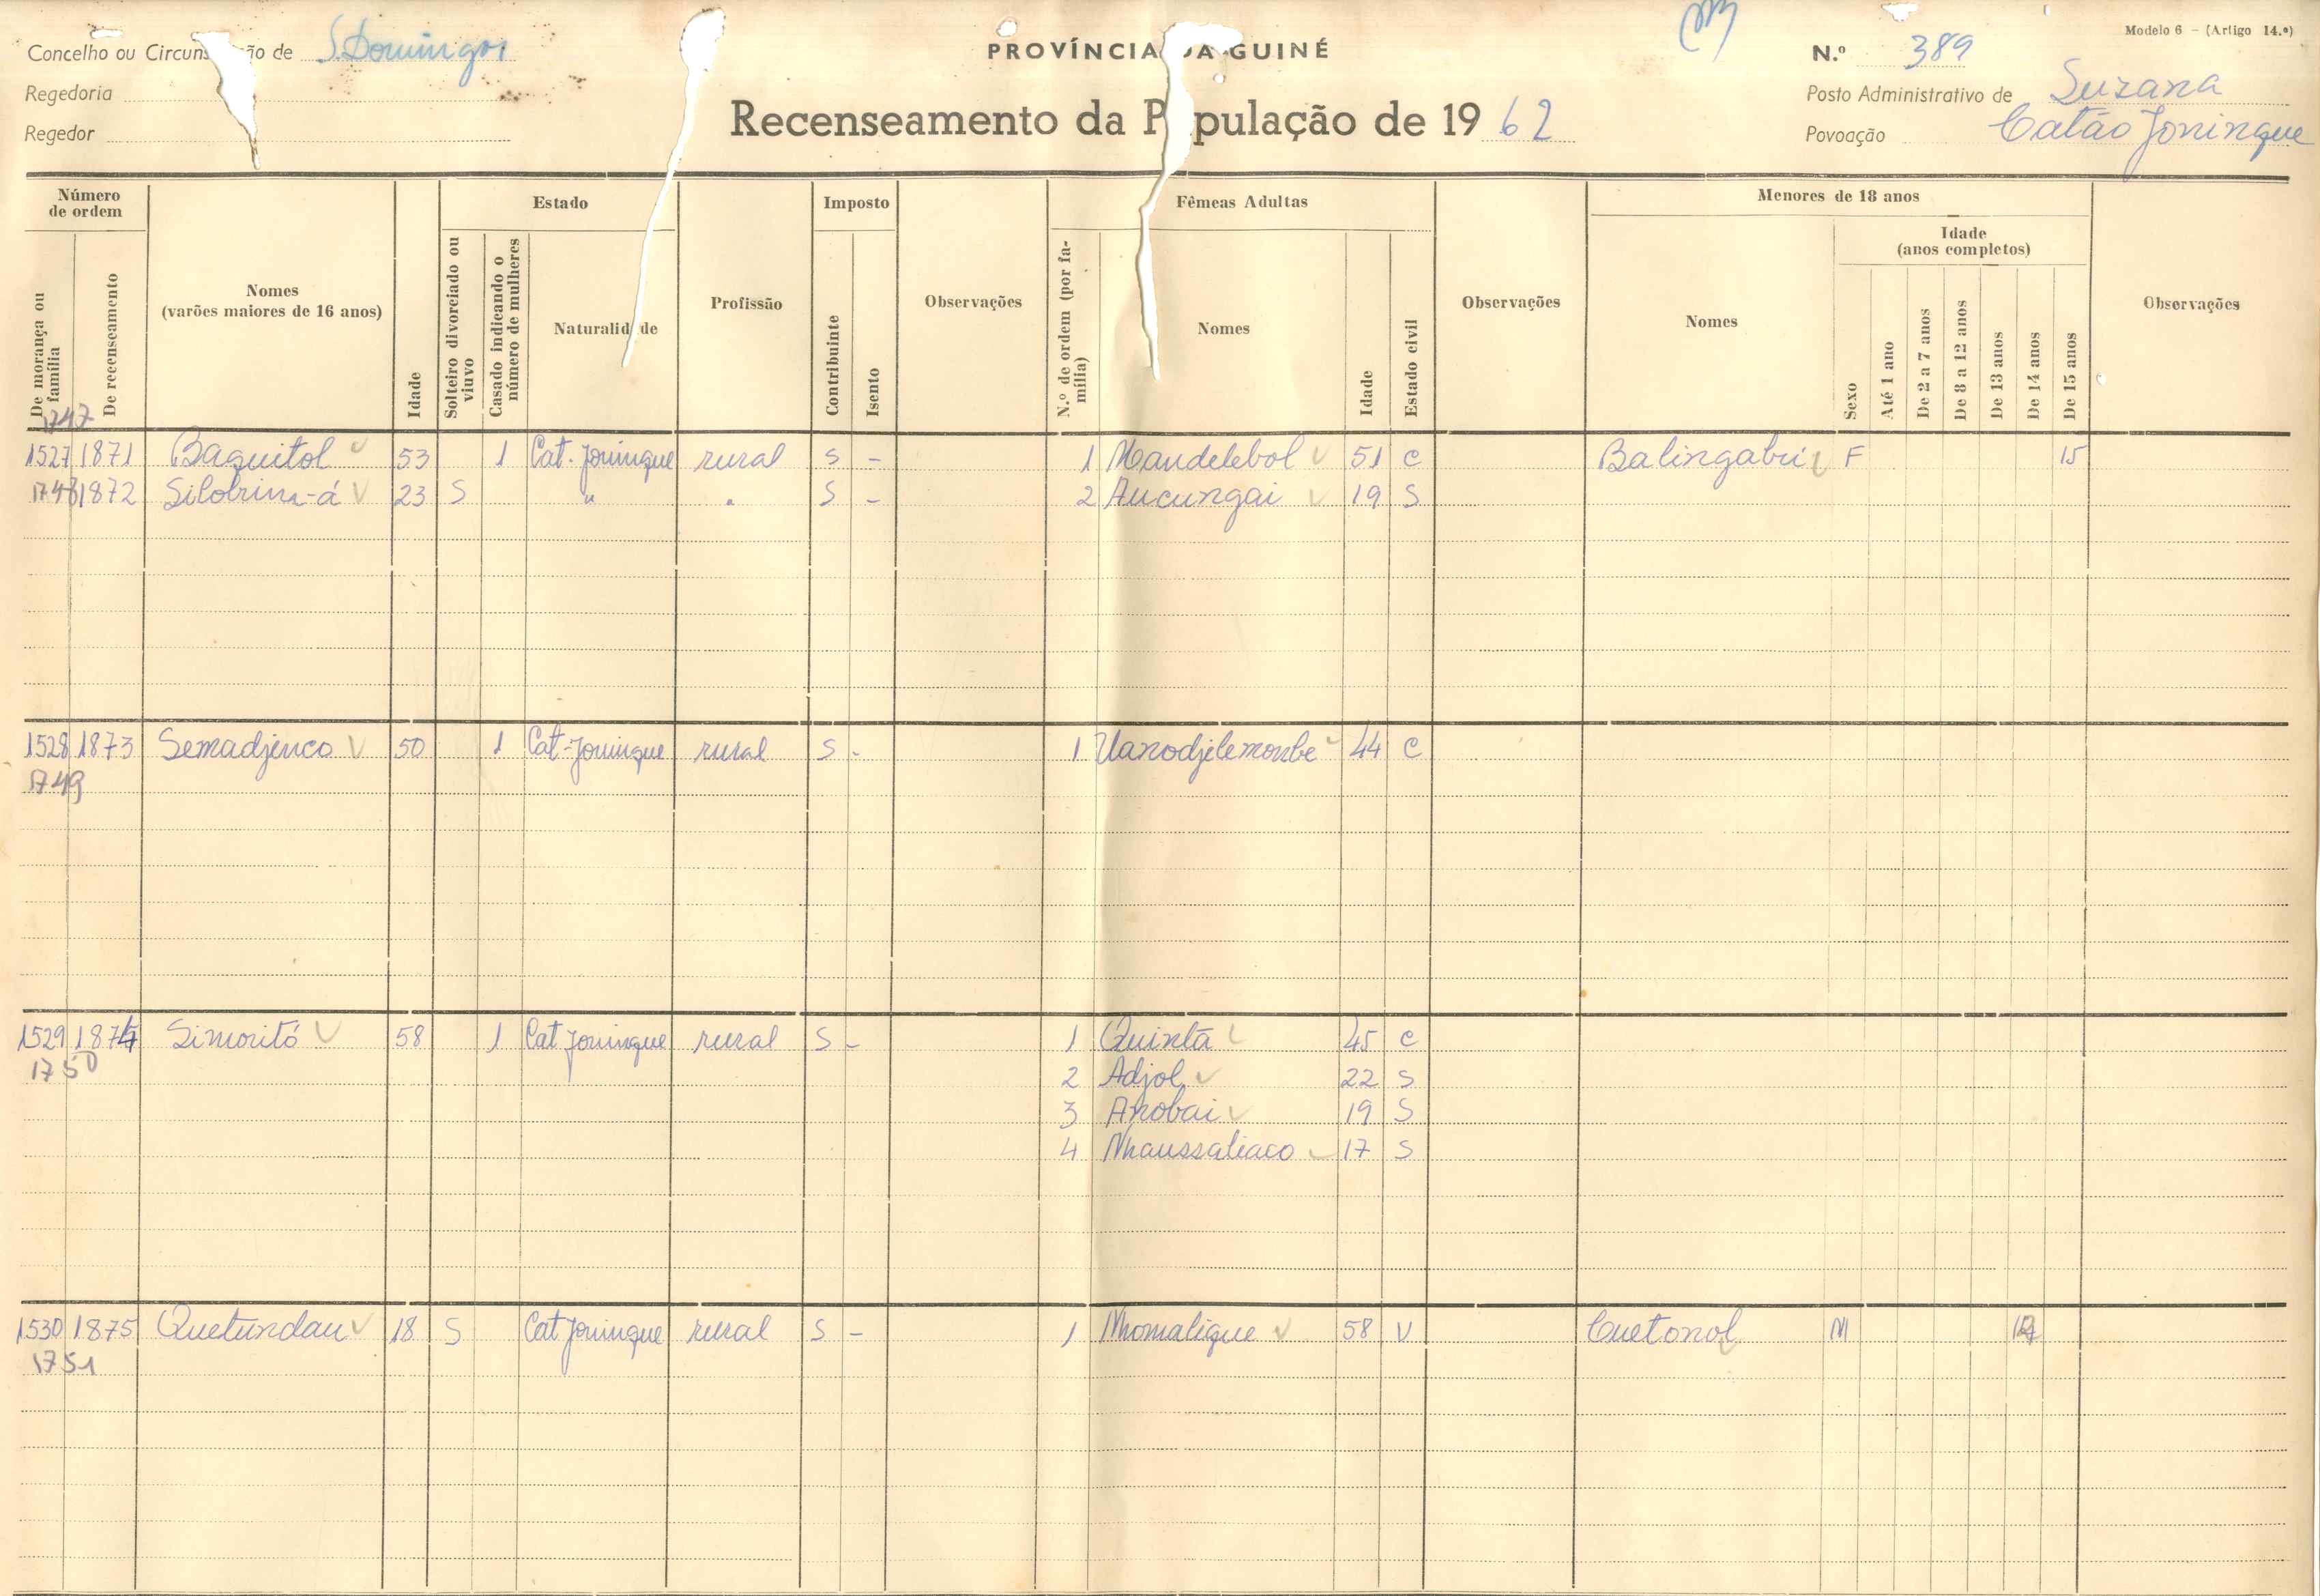 Modelo 6 - (Artigo 14.º)
Concelho ou Circuns ão de S. Domingos
PROVÍNCIA DA GUINÉ
N.º 389
Regedoria
Posto Administrativo de Suzana
Regedor
Recenseamento da P pulação de 1962
Povoação Catão Joningue
Número de ordem
Estado
Imposto
Fêmeas Adultas
Menores de 18 anos
Idade (anos completos)
De morança ou família
De recenseamento
Nomes (varões maiores de 16 anos)
Idade
Solteiro divorciado ou viuvo
Casado indicando o número de mulheres
Naturalidade
Profissão
Contribuinte
Isento
Observações
N.º de ordem (por família)
Nomes
Idade
Estado civil
Observações
Nomes
Sexo
Até 1 ano
De 2 a 7 anos
De 8 a 12 anos
De 13 anos
De 14 anos
De 15 anos
Observações
1747
1527 1871 Baquitol 53 1 Cat. Joningue rural S - 1 Mandelebol 51 C Balingabui F 15
1748 1872 Silobim-á 23 S " " S - 2 Aucungai 19 S
1528 1873 Semadjenco 50 1 Cat-Joningue rural S - 1 Uanodjelemonbe 44 C
1749
1529 1874 Simoritó 58 1 Cat Joningue rural S - 1 Quintã 45 C
1750
2 Adjol 22 S
3 Anobai 19 S
4 Nhaussaliaco 17 S
1530 1875 Quetundau 18 S Cat Joningue rural S - 1 Nhomaligue 58 V Cuetonol M
1751